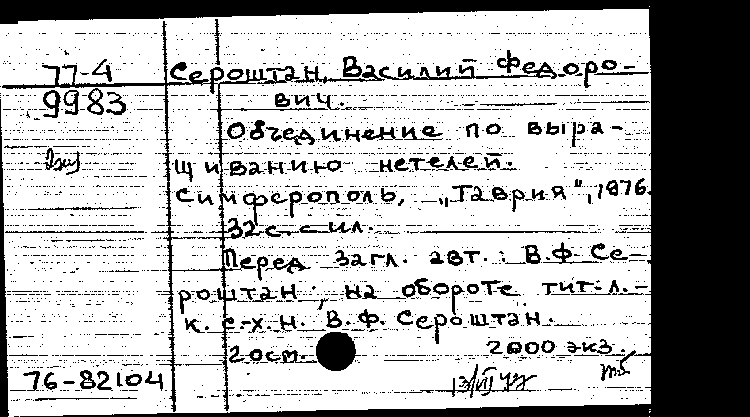 77-4
9983
Сероштан, Василий Федоро-
вич.
Объединение по выра-
щиванию нетелей.
Симферополь, „Таврия", 1976.
32 с. с ил.
Перед загл. авт.: В.Ф. Се-
роштан; на обороте тит. л. -
к. с-х. н. В.Ф. Сероштан.
20см. 2000 экз.
76-82104